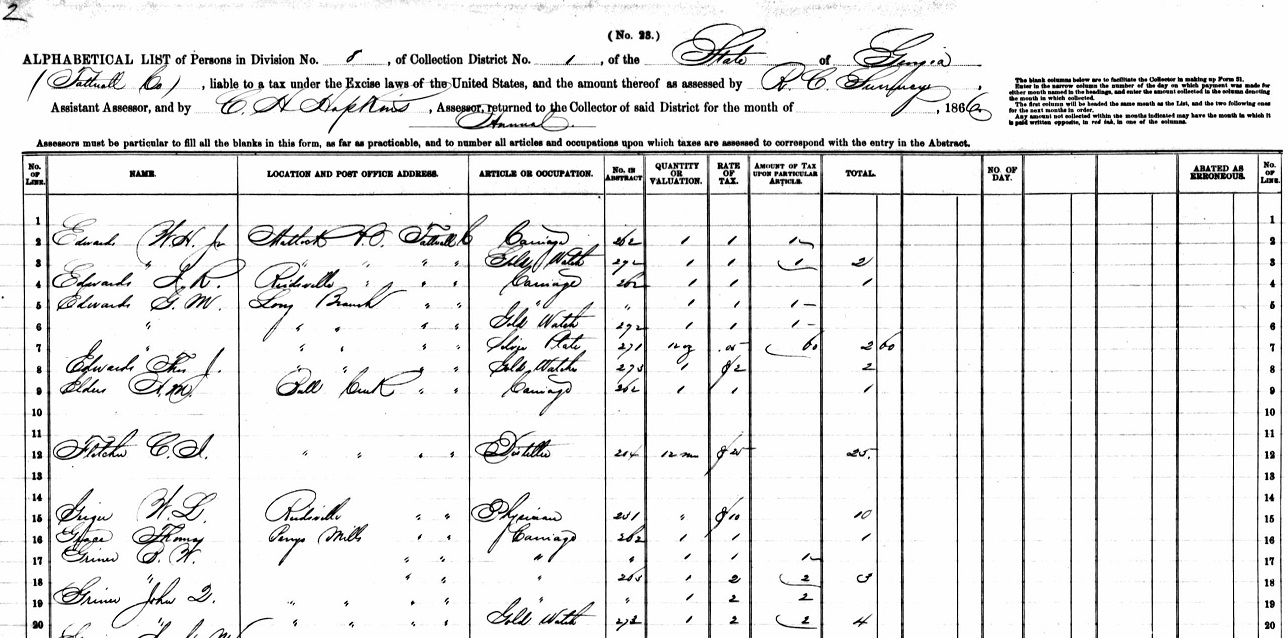 2
( No. 23. )
ALPHABETICAL LIST of Persons in Division No. 8 , of Collection District No. 1 , of the State of Georgia
( Tattnall Co ) , liable to a tax under the Excise laws of the United States, and the amount thereof as assessed by R. C.
Assistant Assessor, and by C. H. Hopkins , Assessor, returned to the Collector of said District for the month of , 1866
Annual
The blank columns below are to facilitate the Collector in making up Form 51.
Enter in the narrow column the number of the day on which payment was made for
either month named in the headings, and enter the amount collected in the column denoting
the month in which collected.
The first column will be headed the same month as the List, and the two following ones
for the next months in order.
Any amount not collected within the months indicated may have the month in which it
is paid written opposite, in red ink, in one of the columns.
Assessors must be particular to fill all the blanks in this form, as far as practicable, and to number all articles and occupations upon which taxes are assessed to correspond with the entry in the Abstract.
No. OF LINE. NAME. LOCATION AND POST OFFICE ADDRESS. ARTICLE OR OCCUPATION. No. IN ABSTRACT QUANTITY OR VALUATION. RATE OF TAX. AMOUNT OF TAX UPON PARTICULAR ARTICLE. TOTAL. NO. OF DAY. ABATED AS ERRONEOUS. No. OF LINE.
1 1
2 Edwards W. H. Jr P.O. Tattnall Co Carriage 262 1 1 1 – 2
3 " " " " " Gold Watch 272 1 1 1 2 3
4 Edwards A. R. Reidsville " " " Carriage 262 1 1 1 4
5 Edwards G. M. Long Branch " " " " 1 1 1 – 5
6 " " " " " Gold Watch 272 1 1 1 – 6
7 " " " " " Silver Plate 271 12 oz .05 60 2 60 7
8 Edwards Thos J. " " " " Gold Watch 273 1 $2 2 8
9 Elders A. M. Bull Creek " " Carriage 262 1 1 1 9
10 10
11 11
12 Fletcher C. I. " " " " Distiller 214 12 m $25 25. 12
13 13
14 14
15 W. L. Reidsville " " Physician 231 " $10 10 15
16 Thomas Perrys Mills " " Carriage 262 1 1 1 16
17 Griner B. W. " " " " 1 1 1 – 17
18 " " " " 263 1 2 2 3 18
19 Griner John D. " " " " " " 1 2 2 19
20 " " " " Gold Watch 273 1 2 2 4 20